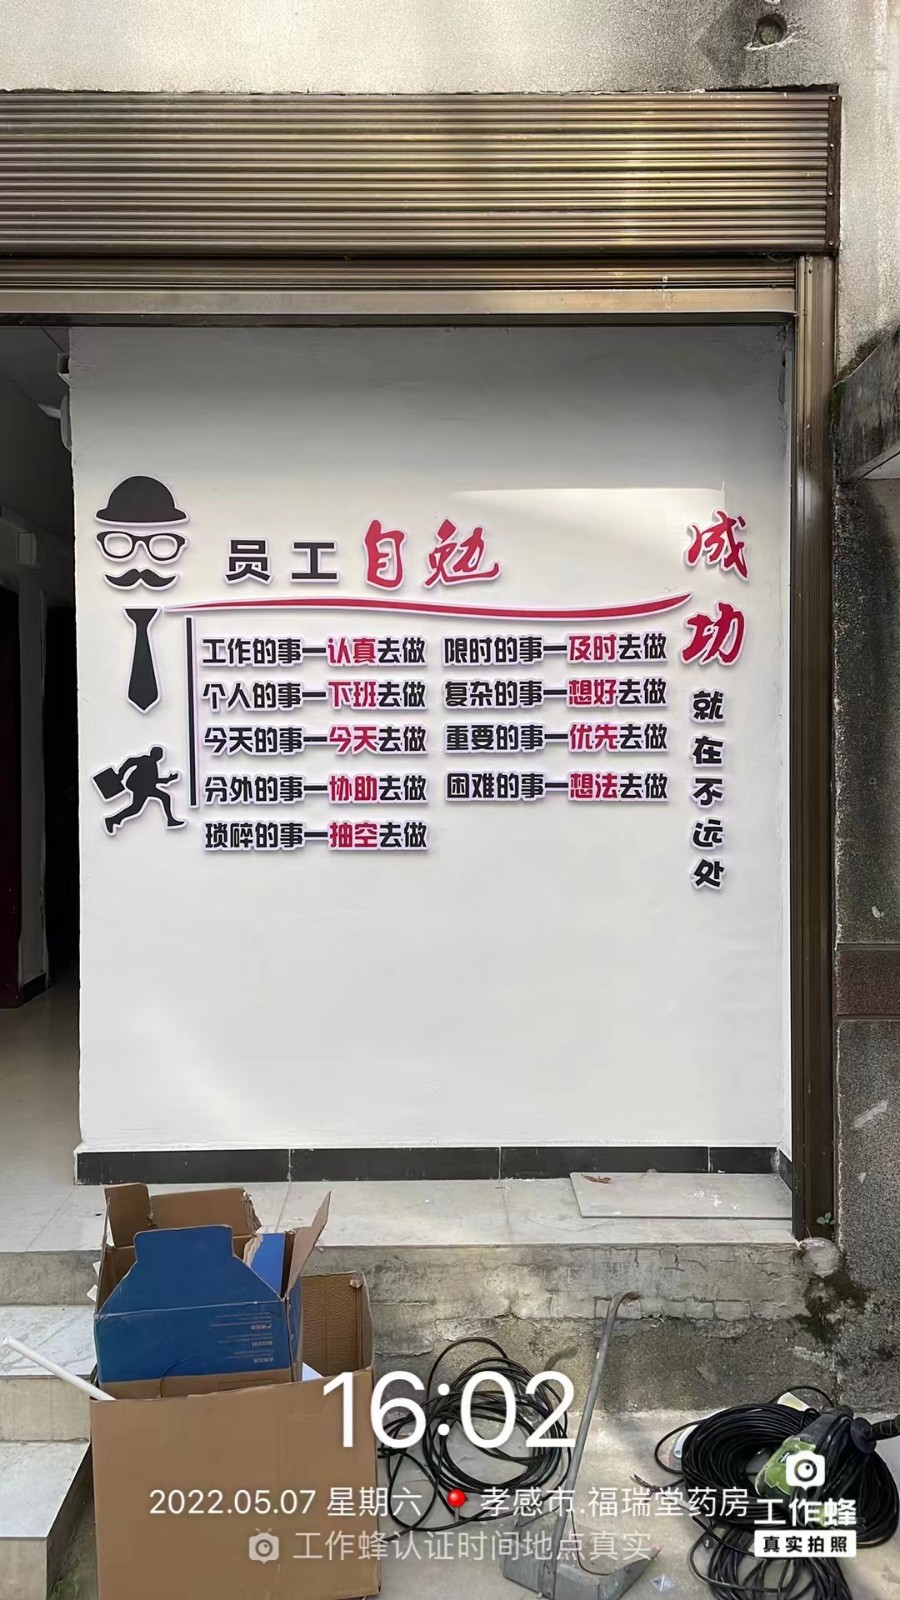 员工自勉
工作的事一认真去做
个人的事一下班去做
今天的事一今天去做
分外的事一协助去做
琐碎的事一抽空去做
限时的事一及时去做
复杂的事一想好去做
重要的事一优先去做
困难的事一想法去做
成功
就在不远处
16:02
2022.05.07 星期六 孝感市.福瑞堂药房
工作蜂认证时间地点真实
工作蜂
真实拍照